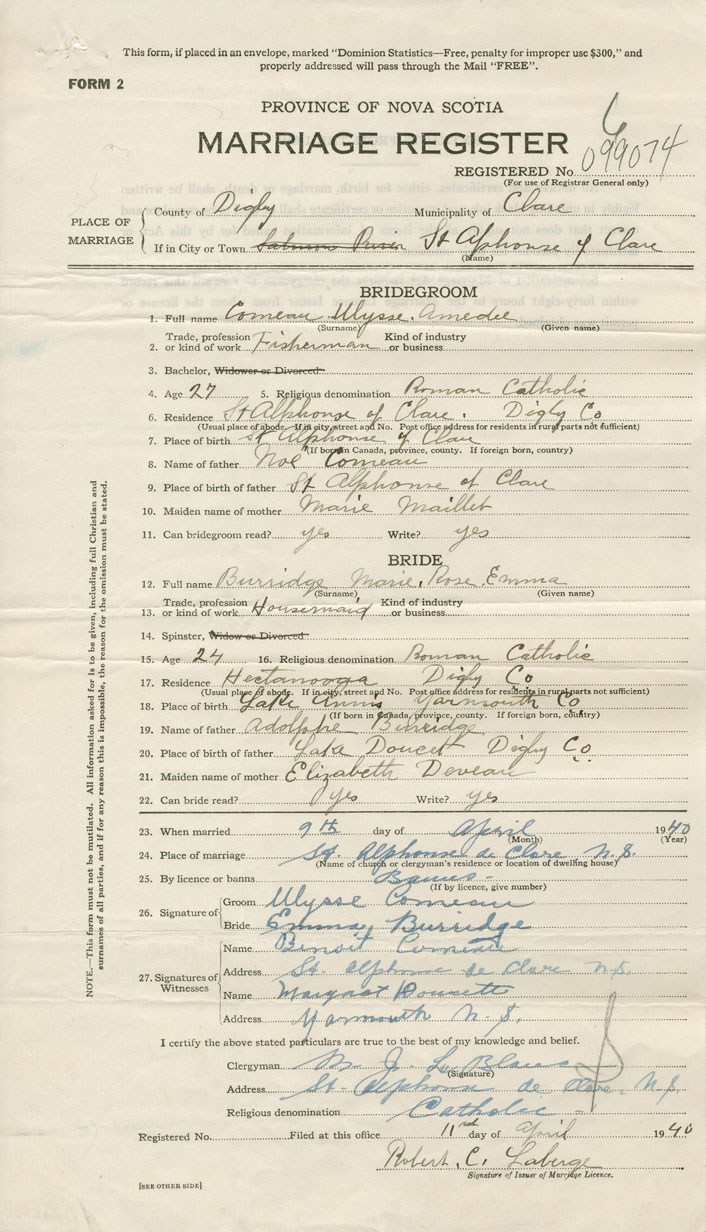 This form, if placed in an envelope, marked "Dominion Statistics—Free, penalty for improper use $300," and
properly addressed will pass through the Mail "FREE".
FORM 2
PROVINCE OF NOVA SCOTIA
MARRIAGE REGISTER
REGISTERED No. 099074
(For use of Registrar General only)
PLACE OF MARRIAGE
County of Digby Municipality of Clare
If in City or Town Salmon River St Alphonse of Clare
(Name)
BRIDEGROOM
1. Full name Comeau Ulysse. Amedee
(Surname) (Given name)
2. Trade, profession or kind of work Fisherman Kind of industry or business
3. Bachelor, Widower or Divorced
4. Age 27 5. Religious denomination Roman Catholic
6. Residence St Alphonse of Clare. Digby Co
(Usual place of abode. If in city, street and No. Post office address for residents in rural parts not sufficient)
7. Place of birth St Alphonse of Clare
(If born in Canada, province, county. If foreign born, country)
8. Name of father Noe Comeau
9. Place of birth of father St Alphonse of Clare
10. Maiden name of mother Marie Maillet
11. Can bridegroom read? yes Write? yes
BRIDE
12. Full name Burridge Marie, Rose Emma
(Surname) (Given name)
13. Trade, profession or kind of work Housemaid Kind of industry or business
14. Spinster, Widow or Divorced
15. Age 24 16. Religious denomination Roman Catholic
17. Residence Hectanooga Digby Co
(Usual place of abode. If in city, street and No. Post office address for residents in rural parts not sufficient)
18. Place of birth Lake Annis Yarmouth Co
(If born in Canada, province, county. If foreign born, country)
19. Name of father Adolphe Burridge
20. Place of birth of father Lake Doucett Digby Co
21. Maiden name of mother Elizabeth Deveau
22. Can bride read? yes Write? yes
23. When married 9th day of April 1940
(Month) (Year)
24. Place of marriage St. Alphonse de Clare N.S.
(Name of church or clergyman's residence or location of dwelling house)
25. By licence or banns Banns -
(If by licence, give number)
26. Signature of Groom Ulysse Comeau
Bride Emma Burridge
27. Signatures of Witnesses
Name Benoit Comeau
Address St. Alphonse de Clare N.S.
Name Margaret Doucette
Address Yarmouth N.S.
I certify the above stated particulars are true to the best of my knowledge and belief.
Clergyman M. J. L Blanc
(Signature)
Address St. Alphonse de Clare, N.S.
Religious denomination Catholic -
Registered No. Filed at this office 11 day of April 1940
Robert. C. Laberge
Signature of Issuer of Marriage Licence.
[SEE OTHER SIDE]
NOTE.—This form must not be mutilated. All information asked for is to be given, including full Christian and
surnames of all parties, and if for any reason this is impossible, the reason for the omission must be stated.